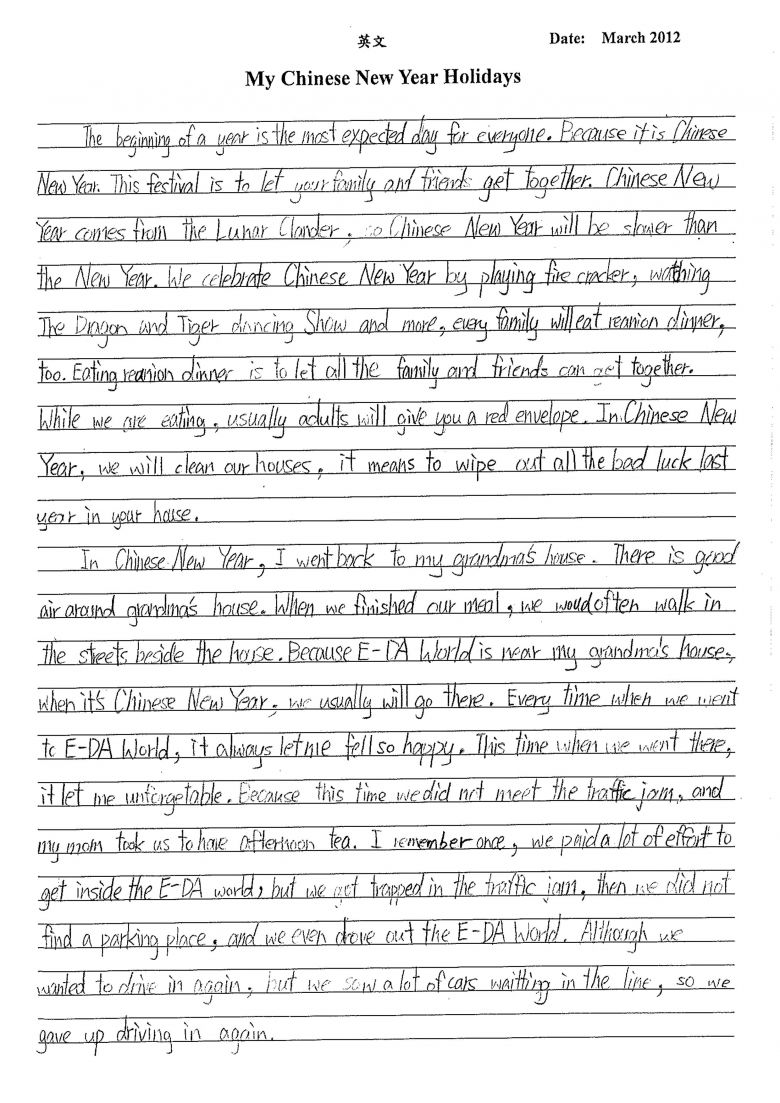 英文
Date: March 2012
My Chinese New Year Holidays
The beginning of a year is the most expected day for everyone. Because it is Chinese
New Year. This festival is to let your family and friends get together. Chinese New
Year comes from the Lunar Clander, so Chinese New Year will be slower than
the New Year. We celebrate Chinese New Year by playing fire cracker, watching
The Dragon and Tiger dancing Show and more, every family will eat reanion dinner,
too. Eating reanion dinner is to let all the family and friends can get together.
While we are eating, usually adults will give you a red envelope. In Chinese New
Year, we will clean our houses, it means to wipe out all the bad luck last
year in your house.
In Chinese New Year, I went back to my grandma's house. There is good
air around grandma's house. When we finished our meal, we woud often walk in
the streets beside the house. Because E-DA World is near my grandma's house,
when it's Chinese New Year, we usually will go there. Every time when we went
to E-DA World, it always let me fell so happy. This time when we went there,
it let me unforgetable. Because this time we did not meet the traffic jam, and
my mom took us to have afternoon tea. I remember once, we paid a lot of effort to
get inside the E-DA world, but we got trapped in the traffic jam, then we did not
find a parking place, and we even drove out the E-DA World. Although we
wanted to drive in again, but we saw a lot of cars waitting in the line, so we
gave up driving in again.